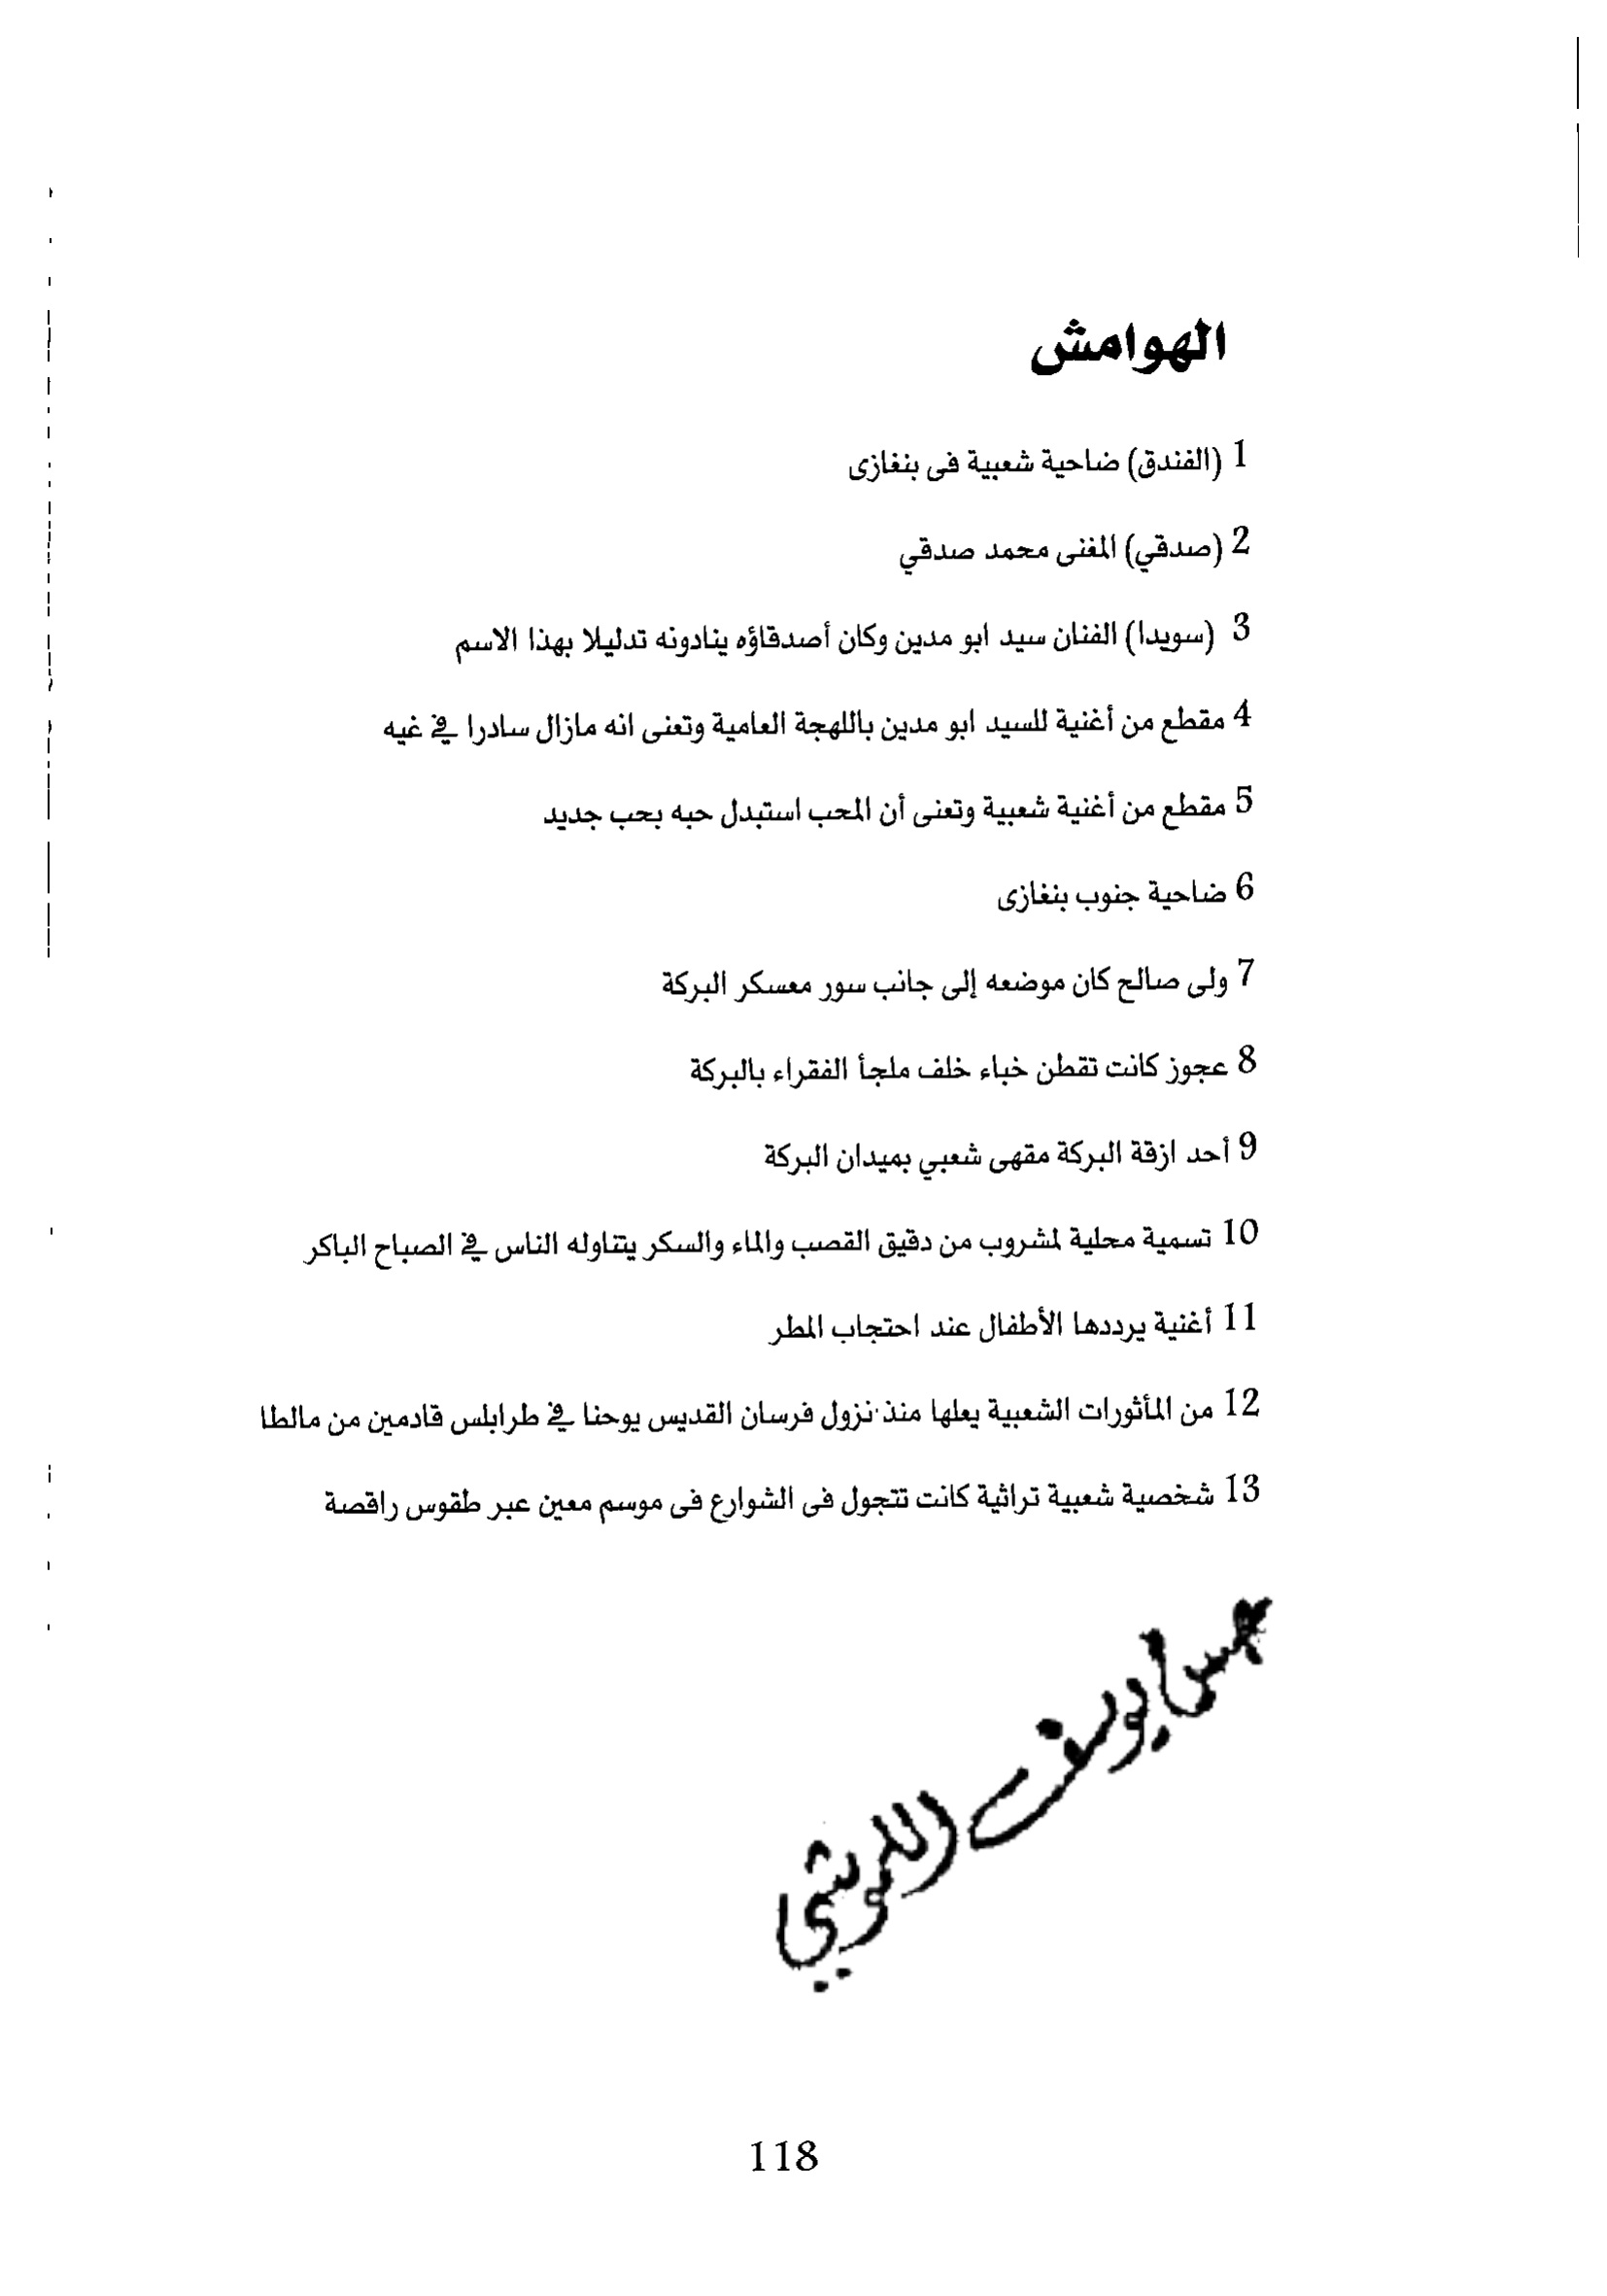 الهوامش
1 (الفندق) ضاحية شعبية فى بنغازى
2 (صدقي) المغنى محمد صدقي
3 (سويدا) الفنان سيد ابو مدين وكان أصدقاؤه ينادونه تدليلا بهذا الاسم
4 مقطع من أغنية للسيد ابو مدين باللهجة العامية وتعنى انه مازال سادرا في غيه
5 مقطع من أغنية شعبية وتعنى أن المحب استبدل حبه بحب جديد
6 ضاحية جنوب بنغازى
7 ولى صالح كان موضعه إلى جانب سور معسكر البركة
8 عجوز كانت تقطن خباء خلف ملجأ الفقراء بالبركة
9 أحد ازقة البركة مقهى شعبي بميدان البركة
10 تسمية محلية لمشروب من دقيق القصب والماء والسكر يتناوله الناس في الصباح الباكر
11 أغنية يرددها الأطفال عند احتجاب المطر
12 من المأثورات الشعبية يعلها منذ نزول فرسان القديس يوحنا في طرابلس قادمين من مالطا
13 شخصية شعبية تراثية كانت تتجول فى الشوارع فى موسم معين عبر طقوس راقصة
يوسف
118